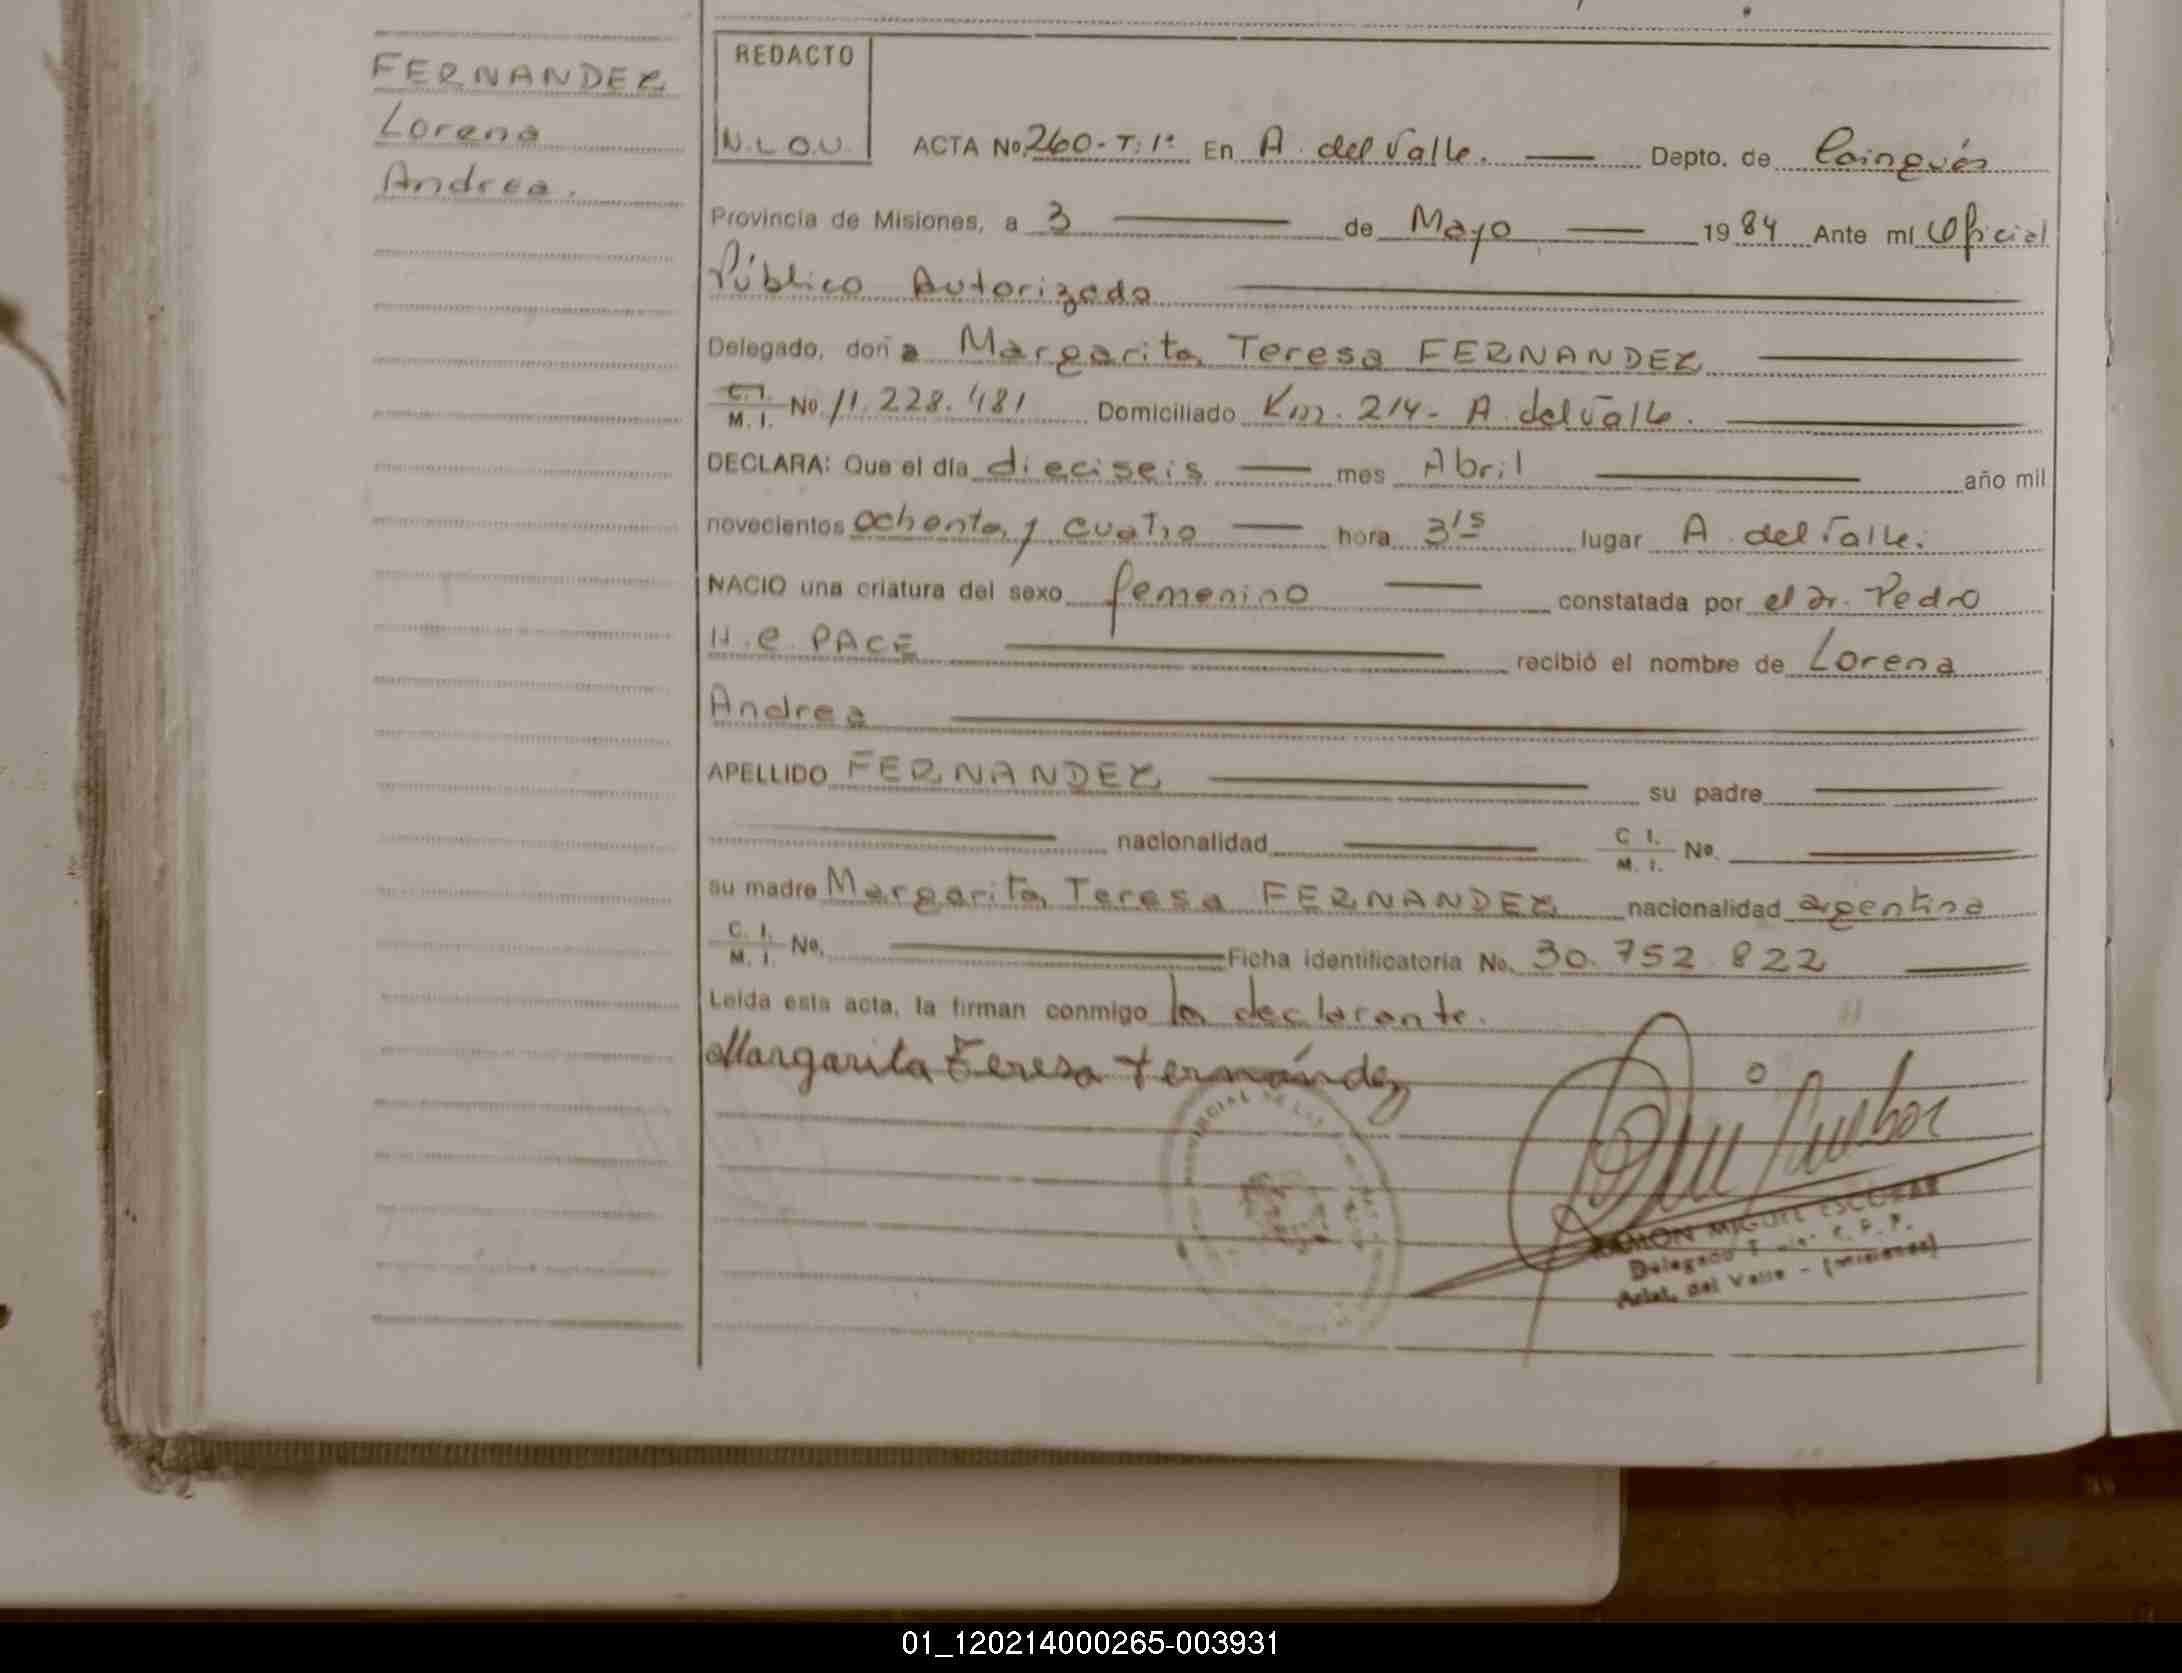 FERNANDEZ
Lorena
Andrea.
REDACTO
N.L.O.U.
ACTA No. 260-T:1º En A. del Valle. Depto. de Cainguás
Provincia de Misiones, a 3 de Mayo 1984 Ante mí Oficial
Público Autorizado
Delegado, doña Margarita Teresa FERNANDEZ
C.I. M.I. No. 11.228.481 Domiciliado Km. 214- A. del Valle.
DECLARA: Que el día dieciseis mes Abril año mil
novecientos ochenta y cuatro hora 3 15 lugar A. del Valle.
NACIO una criatura del sexo femenino constatada por el Dr. Pedro
H.C. PACE recibió el nombre de Lorena
Andrea
APELLIDO FERNANDEZ su padre
nacionalidad C I. M. I. No.
su madre Margarita Teresa FERNANDEZ nacionalidad argentina
C. I. M. I. No. Ficha identificatoria No. 30.752.822
Leída esta acta, la firman conmigo la declarante.
Margarita Teresa Fernández
RAMON MIGUEL ESCOBAR
Delegado C. P. P.
Arist. del Valle - (Misiones)
01_120214000265-003931